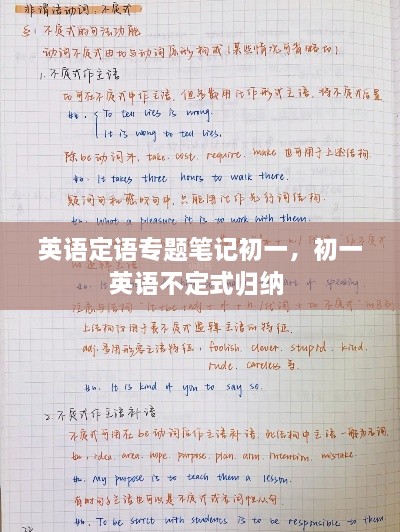 非谓语动词:不定式
不定式的句法功能
动词不定式由to与动词原形构成(某些情况可省略to).
1.不定式作主语
to可在不定式中作主语,但多数用it作形式主语,将不定式后置
To tell lies is wrong.
It is wrong to tell lies.
除be动词外,take, cost, require, make 也可用于上述结构.
It takes three hours to walk there.
疑问句和感叹句中,只能用it作先行词结构.
What a pleasure it is to work with them.
英语定语专题笔记初一,初一
英语不定式归纳
of speaking
上结构仅用于表不定式逻辑主语的特征.
adj.多用形容主语特征, foolish, clever, stupid, kind,
rude, careless等
It is kind of you to say so.
2.不定式作主语补语
不定式可用在be动词后作主语补语,此结构中主语一般为名词.
idea, area, hope, purpose, plan, aim, intention, mistake.
My purpose is to teach them a lesson.
有时句子主语也可以是不定式或名词性从句
To be strict with students is to be responsible to them